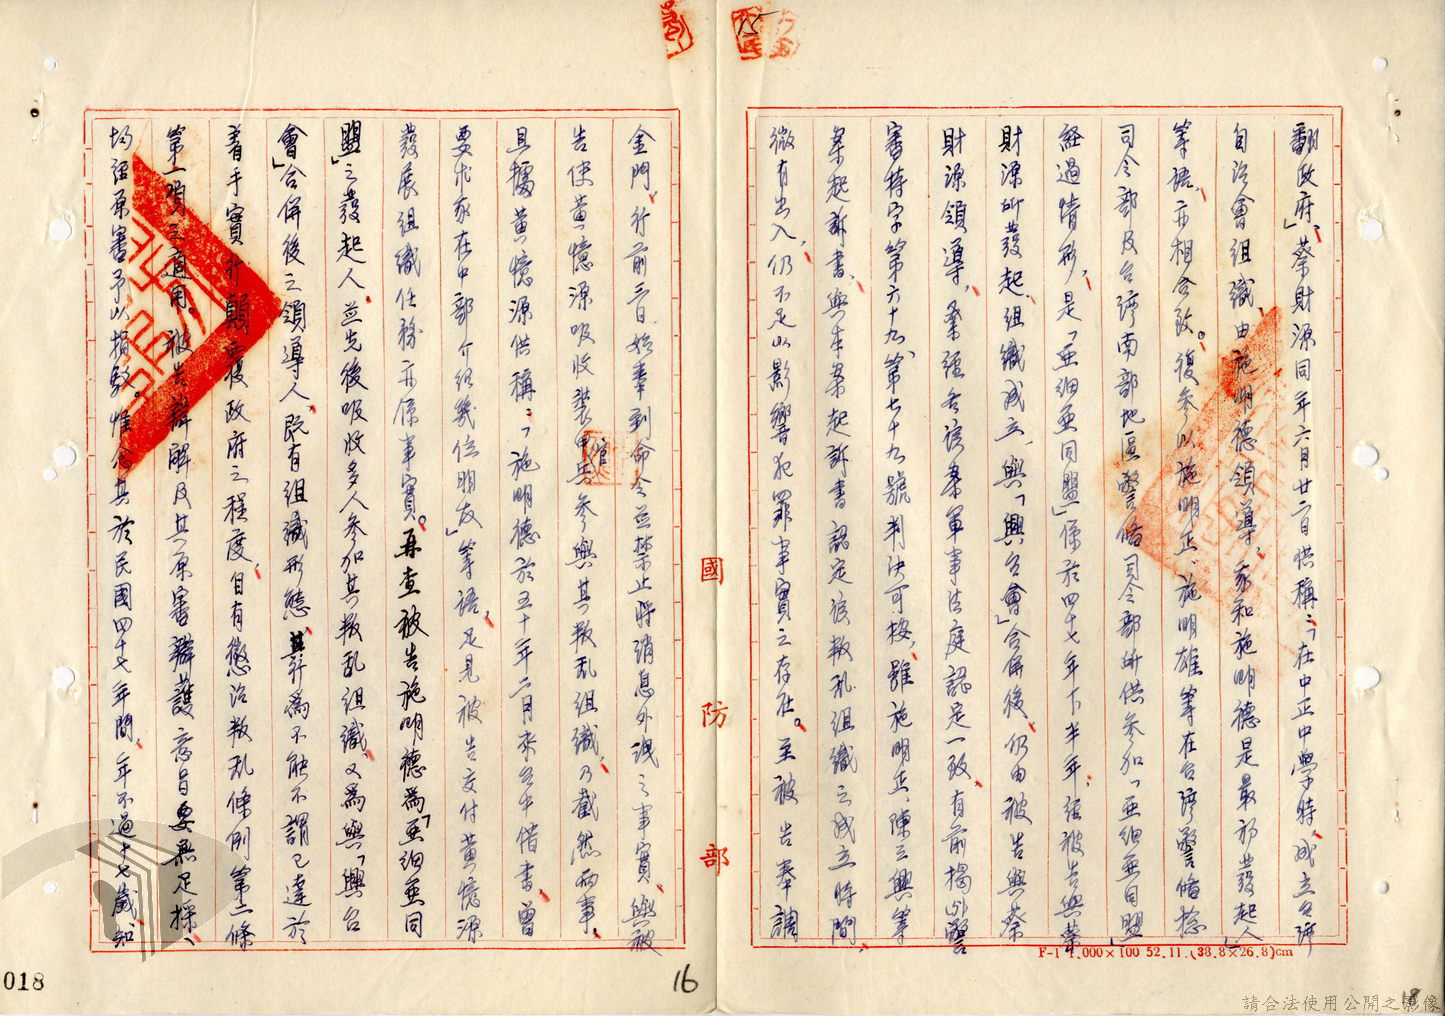 翻政府」,蔡財源同年六月廿二日供稱:「在中正中學時,成立台灣
自治會組織,由施明德領導,我和施明德是最初發起人」
等語,亦相合致。復參以施明正、施明雄等在台灣警備總
司令部及台灣南部地區警備司令部所供參加「亞細亞同盟」
經過情形,是「亞細亞同盟」係於四十七年下半年,經被告與蔡
財源所發起、組織成立,與「興台會」合併後,仍由被告與蔡
財源領導,案經各該案軍事法庭認定一致,有前揭警
審特字第六十九、第七十九號判決可按,雖施明正、陳三興等
案起訴書,與本案起訴書認定該叛亂組織之成立時間,
微有出入,仍不足以影響犯罪事實之存在。至被告奉調
金門,行前三日始奉到命令並禁止將消息外洩之事實,與被
告使黃憶源吸收裝甲兵參與其叛亂組織,乃截然兩事,
且據黃憶源供稱:「施明德於五十年二月來台中借書,曾
要求我在中部介紹幾位朋友」等語,足見被告交付黃憶源
發展組織任務亦係事實。再查被告施明德為「亞細亞同
盟」之發起人,並先後吸收多人參加其叛亂組織,又為與「興台
會」合併後之領導人,既有組織形態,其行為不能不謂已達於
著手實行顛覆政府之程度,自有懲治叛亂條例第二條
第一項之適用。被告辯解及其原審辯護意旨要無足採,
均經原審予以指駁。惟念其於民國四十七年間,年不過十七歲,知
官
國防部
F-1 1,000×100 52.11.(38.8×26.8)cm
15
16
18
018
請合法使用公開之影像